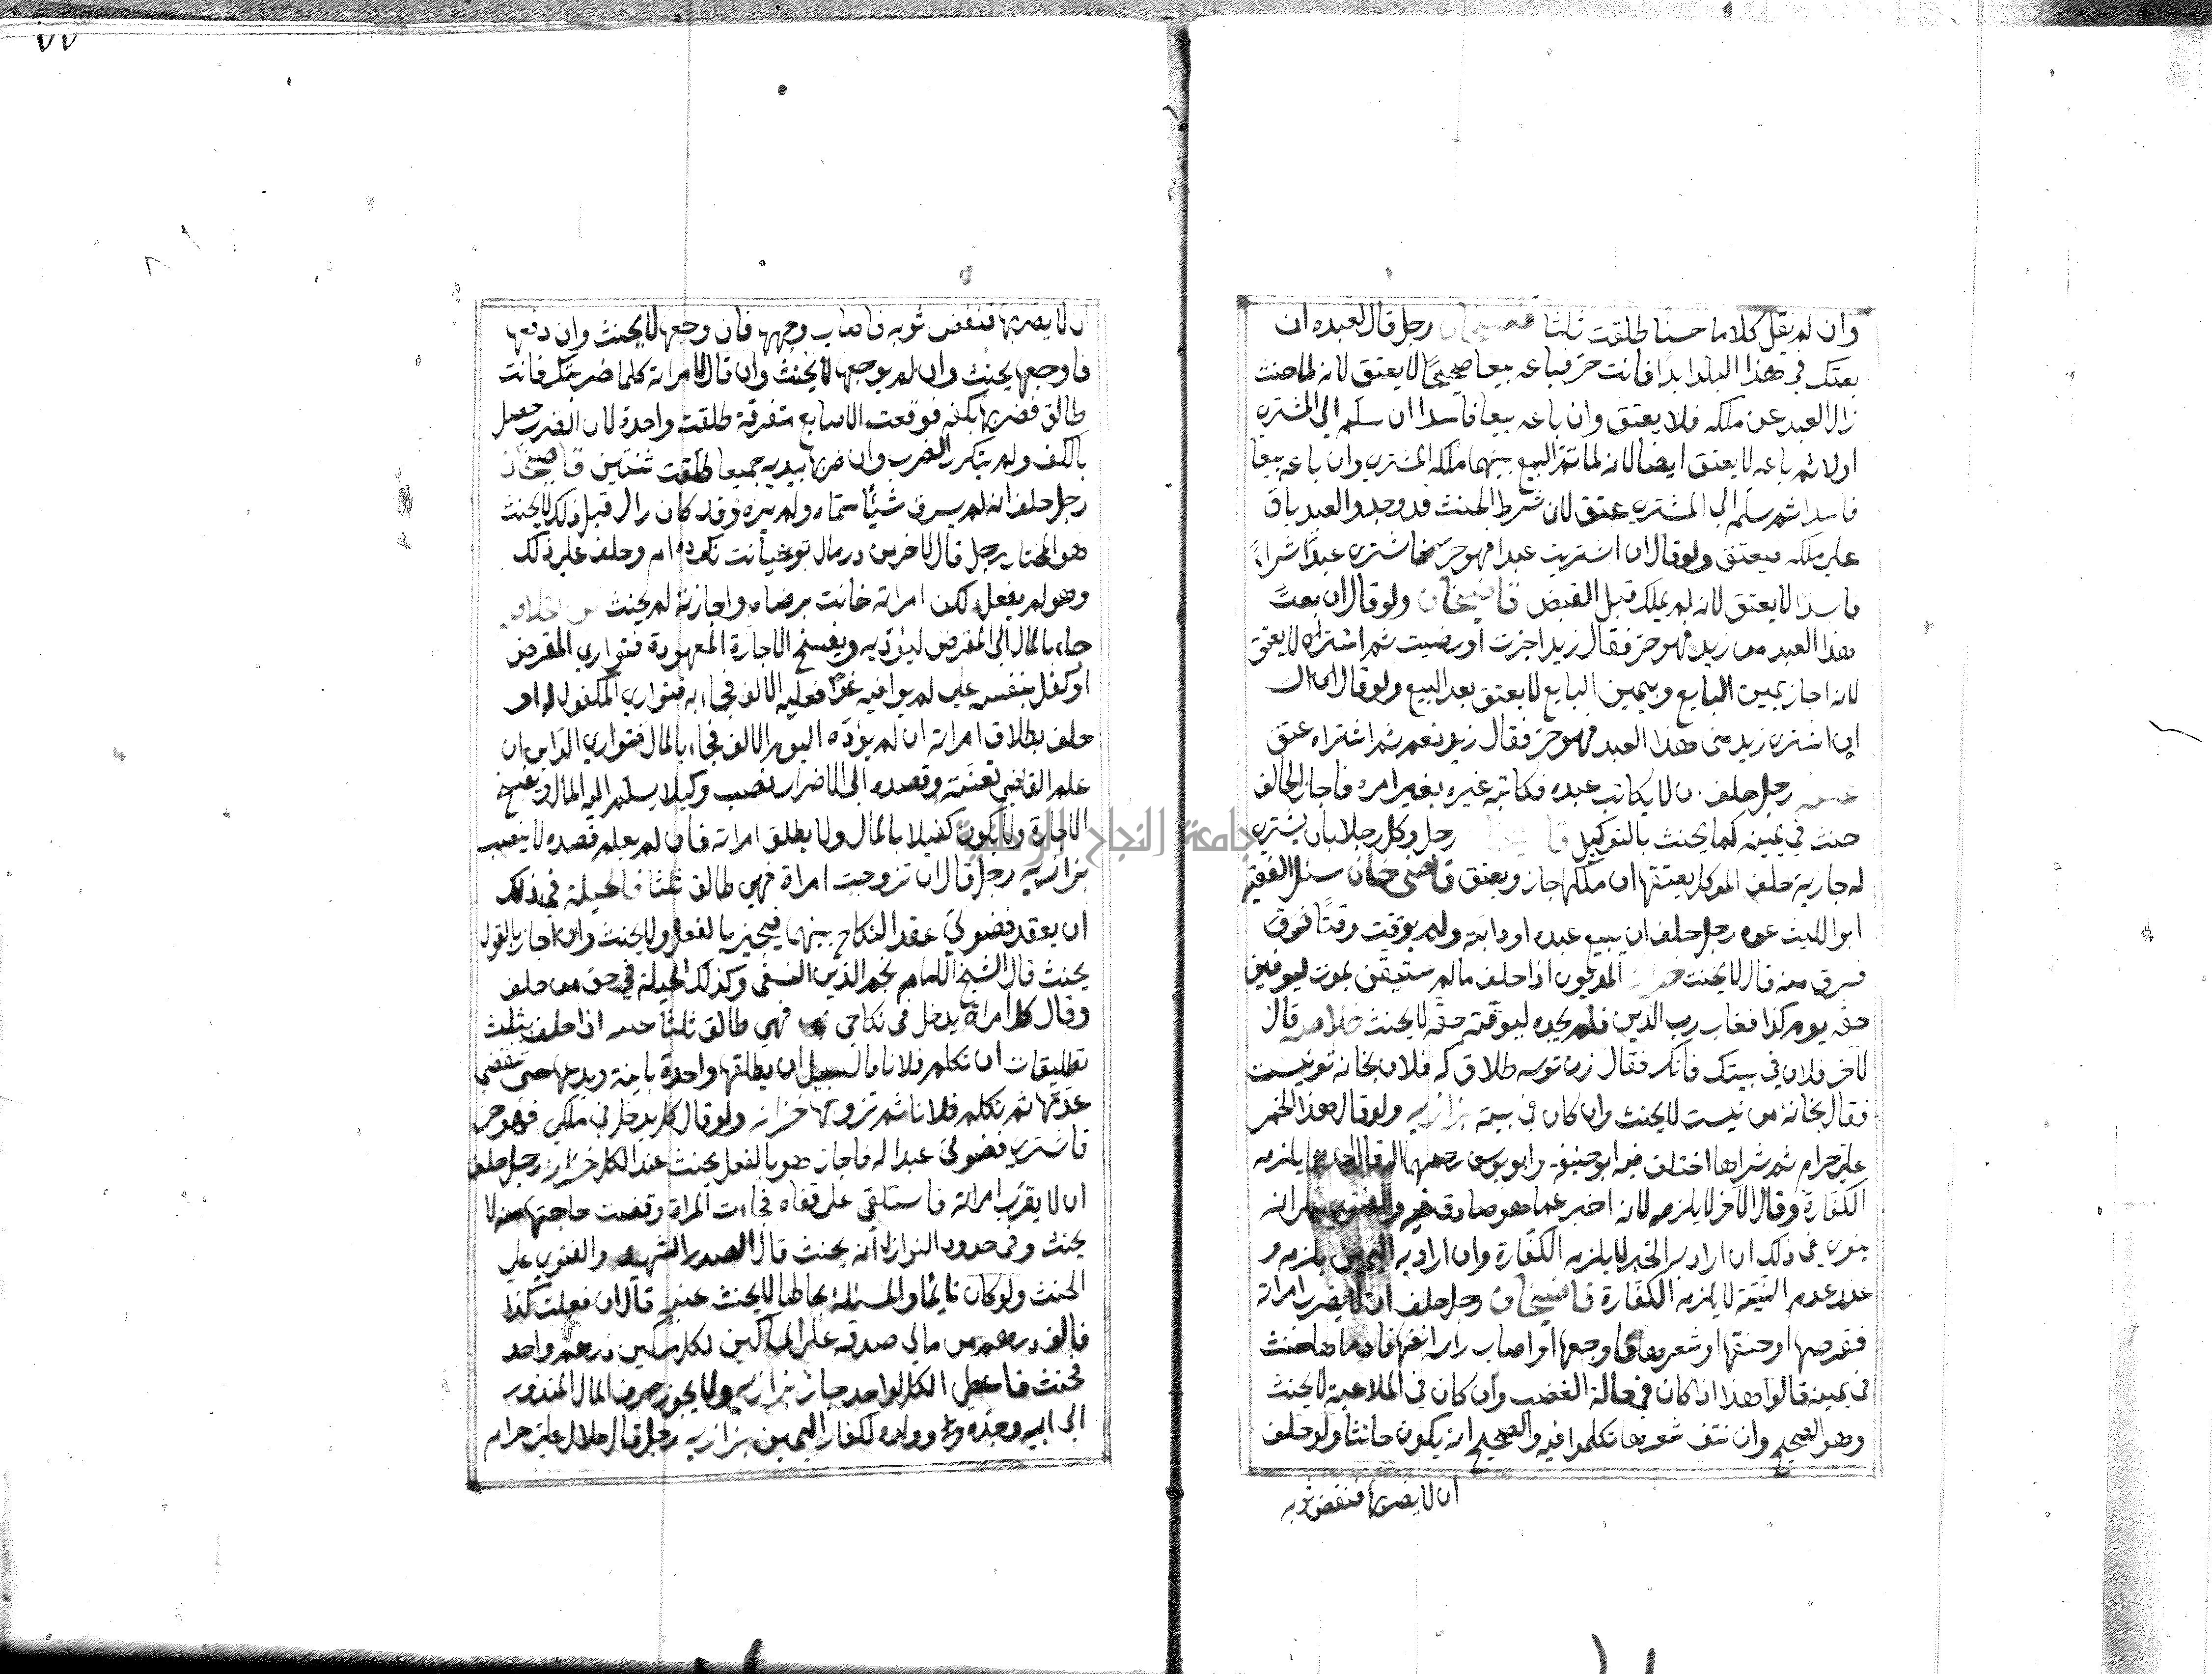 ٧٧
وان لم يقل كلاما حسنا طلقت ثلثا رجل قال لعبده ان
بعتك في هذا البلد ابدا فانت حر فباعه بيعا صحيحا لا يعتق لانه لما حنث
زال العبد عن ملكه فلا يعتق وان باعه بيعا فاسدا ان سلم الى المشتري
اولا ثم باعه لا يعتق ايضا لانه لما تم البيع بينهما ملكه المشتري وان باعه بيعا
فاسدا ثم سلم الى المشتري عتق لان شرط الحنث قد وجد والعبد باق
على ملكه فيعتق ولو قال ان اشتريت عبدا فهو حر فاشترى عبدا شراءً
فاسدا لا يعتق لانه لم يملك قبل القبض قاضيخان ولو قال ان بعت
هذا العبد من زيد فهو حر فقال زيد اجزت او رضيت ثم اشتراه لا يعتق
لانه اجاز يمين البايع وبيمين البايع لا يعتق بعد البيع ولو قال
ان اشترى زيد مني هذا العبد فهو حر فقال زيد نعم ثم اشتراه عتق
رجل حلف ان لا يكاتب عبده فكاتبه غيره بغير امره فاجاز الحالف
حنث في يمينه كما يحنث بالتوكيل رجل وكل رجلا بان يشتري
له جارية حلف الموكل بعتقها ان ملكها جاز ويعتق قاضي خان سئل الفقيه
ابو الليث عن رجل حلف ان يبيع عبده او دابته ولم يوقت وقتا فسرق
فسرق منه قال لا يحنث المديون اذا حلف ما لم يستيقن بموت ليوفين
حقه يوم كذا فغاب رب الدين فلم يجده ليوفيه حقه لا يحنث خلاصه قال
لآخر فلان في بيتك فانكر فقال زن توسه طلاق كه فلان بخانه تو نيست
فقال بخانه من نيست لا يحنث وان كان في بيته بزازيه ولو قال هذا الخمر
على حرام ثم شرابها اختلف فيه ابو حنيفه وابو يوسف رحمهما الله قال احدهما يلزمه
الكفارة وقال الآخر لا يلزمه لانه اخبر عما هو صادق فيه والفتوى على انه
ينوى في ذلك ان اراد به الخبر لا يلزمه الكفارة وان اراد به اليمين يلزمه و
عند عدم النية لا يلزمه الكفارة قاضيخان رجل حلف ان لا يضرب امراته
فقرصها او خنقها او شعرها فاوجعها او اصاب راسه انفها فادماها حنث
في يمينه قالوا هذا اذا كان في حالة الغضب وان كان في الملاعبة لا يحنث
وهو الصحيح وان نتف شعرها تكلموا فيه والصحيح انه يكون حانثا ولو حلف
ان لا يضربها فنفض ثوبه
ان لا يضربها فنفض ثوبه فاصاب وجهها فان وجعها لا يحنث وان دفعها
فاوجعها يحنث وان لم يوجعها لا يحنث وان قال لامراته كلما ضربتك فانت
طالق فضربها بكفه فوقعت الاصابع متفرقة طلقت واحدة لان الضرب حصل
بالكف ولم يتكرر الضرب وان ضربها بيديه جميعا طلقت ثنتين قاضيخان
رجل حلف انه لم يسرق شيئا سماه ولم يره وقد كان رآه قبل ذلك لا يحنث
هو المختار رجل قال لآخر من در مال تو خيانت نكرده ام وحلف على ذلك
وهو لم يفعل لكن امراته خانت برضاه واجازته لم يحنث من الخلاصه
جاء بالمال الى المقرض ليؤديه ويفسخ الاجارة المعهودة فتوارى المقرض
او كفل بنفسه على لم يوافيه غدا فعليه الالف فجاء به فتوارى المكفول له او
حلف بطلاق امراته ان لم يؤده اليوم الالف فجاء بالمال فتوارى الداين ان
علم القاضي تعنته وقصده الى الاضرار نصب وكيلا يسلم اليه المال ويفسخ
الاجارة ولا يكون كفيلا بالمال ولا يطلق امراته فان لم يعلم قصده لا ينصب
بزازيه رجل قال ان تزوجت امراة فهي طالق ثلثا فالحيلة في ذلك
ان يعقد فضولي عقد النكاح بينهما فيجيز بالفعل ولا يحنث وان اجاز بالقول
يحنث قال الشيخ الامام نجم الدين النسفى وكذلك الحيلة في حق من حلف
وقال كل امراة يدخل في نكاحي فهي طالق ثلثا اذا حلف بثلث
تطليقات ان تكلم فلانا فالسبيل ان يطلقها واحدة باينة ويدعها حتى تنقضي
عدتها ثم تكلم فلانا ثم تزوجها خزانه ولو قال كل يدخل في ملكي فهو حر
فاشترى فضولى عبدا له فاجاز هو بالفعل يحنث عند الكل خزانه رجل حلف
ان لا يقرب امراته فاستلقى على قفاه فجاءت المراة وقضت حاجتها منه لا
يحنث وفى حدود النوازل انه يحنث قال الصدر الشهيد والفتوى على
الحنث ولو كان نايما والمسئلة بحالها لا يحنث قال ان فعلت كذا
فالف درهم من مالي صدقه على المساكين لكل مسكين درهم واحد
فحنث فاعطى الكل لواحد جاز بزازيه ولا يجوز صرف المال المنذور
الى ابيه وجده وولده لكفار اليمين بزازيه رجل قال حلال على حرام
جامعة النجاح الوطنية